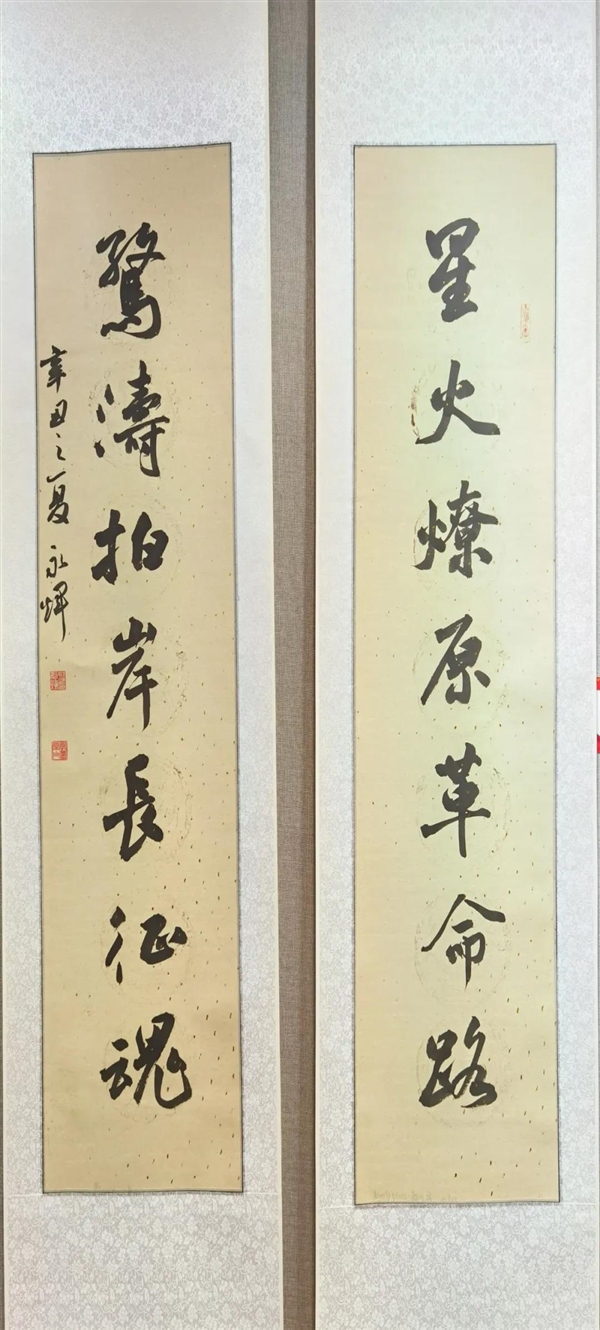 星火燎原革命路
驚濤拍岸長征魂
辛丑之夏永輝